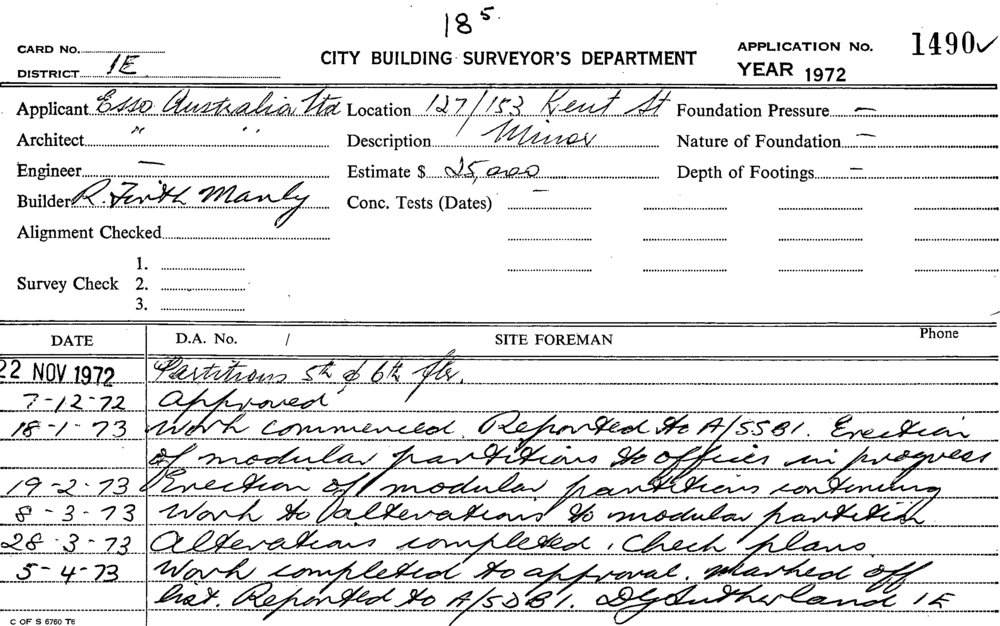 18⁵.
CARD No.
DISTRICT 1E
CITY BUILDING SURVEYOR'S DEPARTMENT
APPLICATION No. 1490✓
YEAR 1972
Applicant Esso Australia Ltd Location 127/153 Kent St Foundation Pressure —
Architect " " Description Minor Nature of Foundation —
Engineer — Estimate $ 25,000 Depth of Footings —
Builder R. Firth Manly Conc. Tests (Dates) —
Alignment Checked
Survey Check
1.
2.
3.
DATE D.A. No. / SITE FOREMAN Phone
22 NOV 1972 Partitions 5th & 6th flr.
7-12-72 Approved
18-1-73 Work commenced. Reported to A/SSB1. Erection
of modular partitions to offices in progress
19-2-73 Erection of modular partitions continuing
8-3-73 Work to alterations to modular partition
28-3-73 Alterations completed. Check plans.
5-4-73 Work completed to approval. Marked off
list. Reported to A/SDB1. DG Sutherland 1E
C OF S 6760 T6